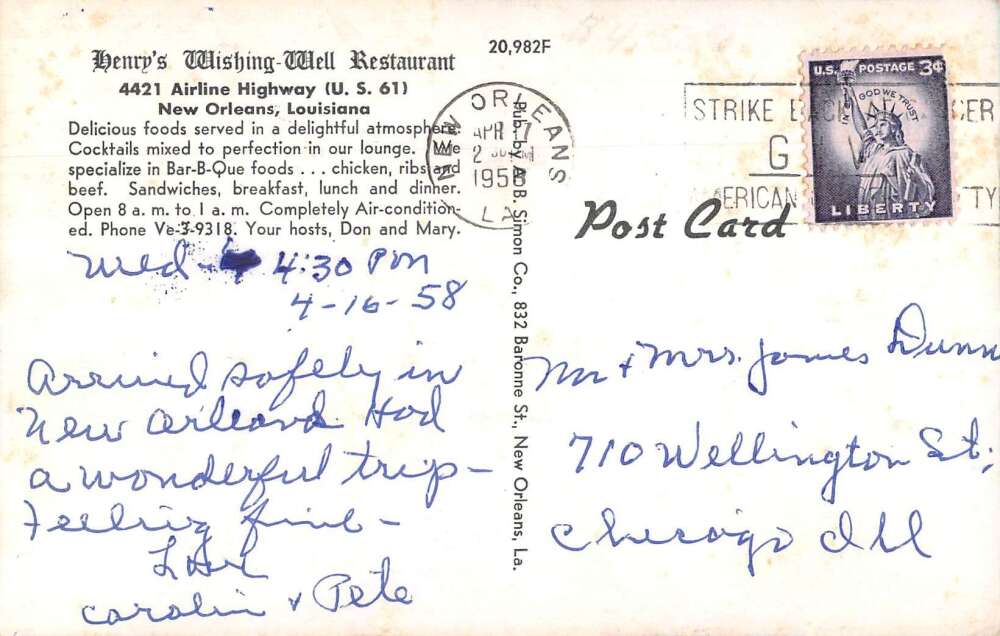 20,982F
Henry's Wishing-Well Restaurant
4421 Airline Highway (U. S. 61)
New Orleans, Louisiana
Delicious foods served in a delightful atmosphere.
Cocktails mixed to perfection in our lounge. We
specialize in Bar-B-Que foods . . . chicken, ribs and
beef. Sandwiches, breakfast, lunch and dinner.
Open 8 a. m. to 1 a. m. Completely Air-condition-
ed. Phone Ve-3-9318. Your hosts, Don and Mary.
Wed - 4:30 PM
4-16-58
Arrived safely in
New Orleans. Had
a wonderful trip -
Feeling fine -
Love
Carolin & Pete
Pub. by A. B. Simon Co., 832 Baronne St., New Orleans, La.
NEW ORLEANS
APR 17
2 30 PM
1958
LA
STRIKE BACK CER
G
ERICAN TY
U.S. POSTAGE 3¢
IN GOD WE TRUST
LIBERTY
Post Card
Mr & Mrs. James Dunn
710 Wellington St.
Chicago Ill